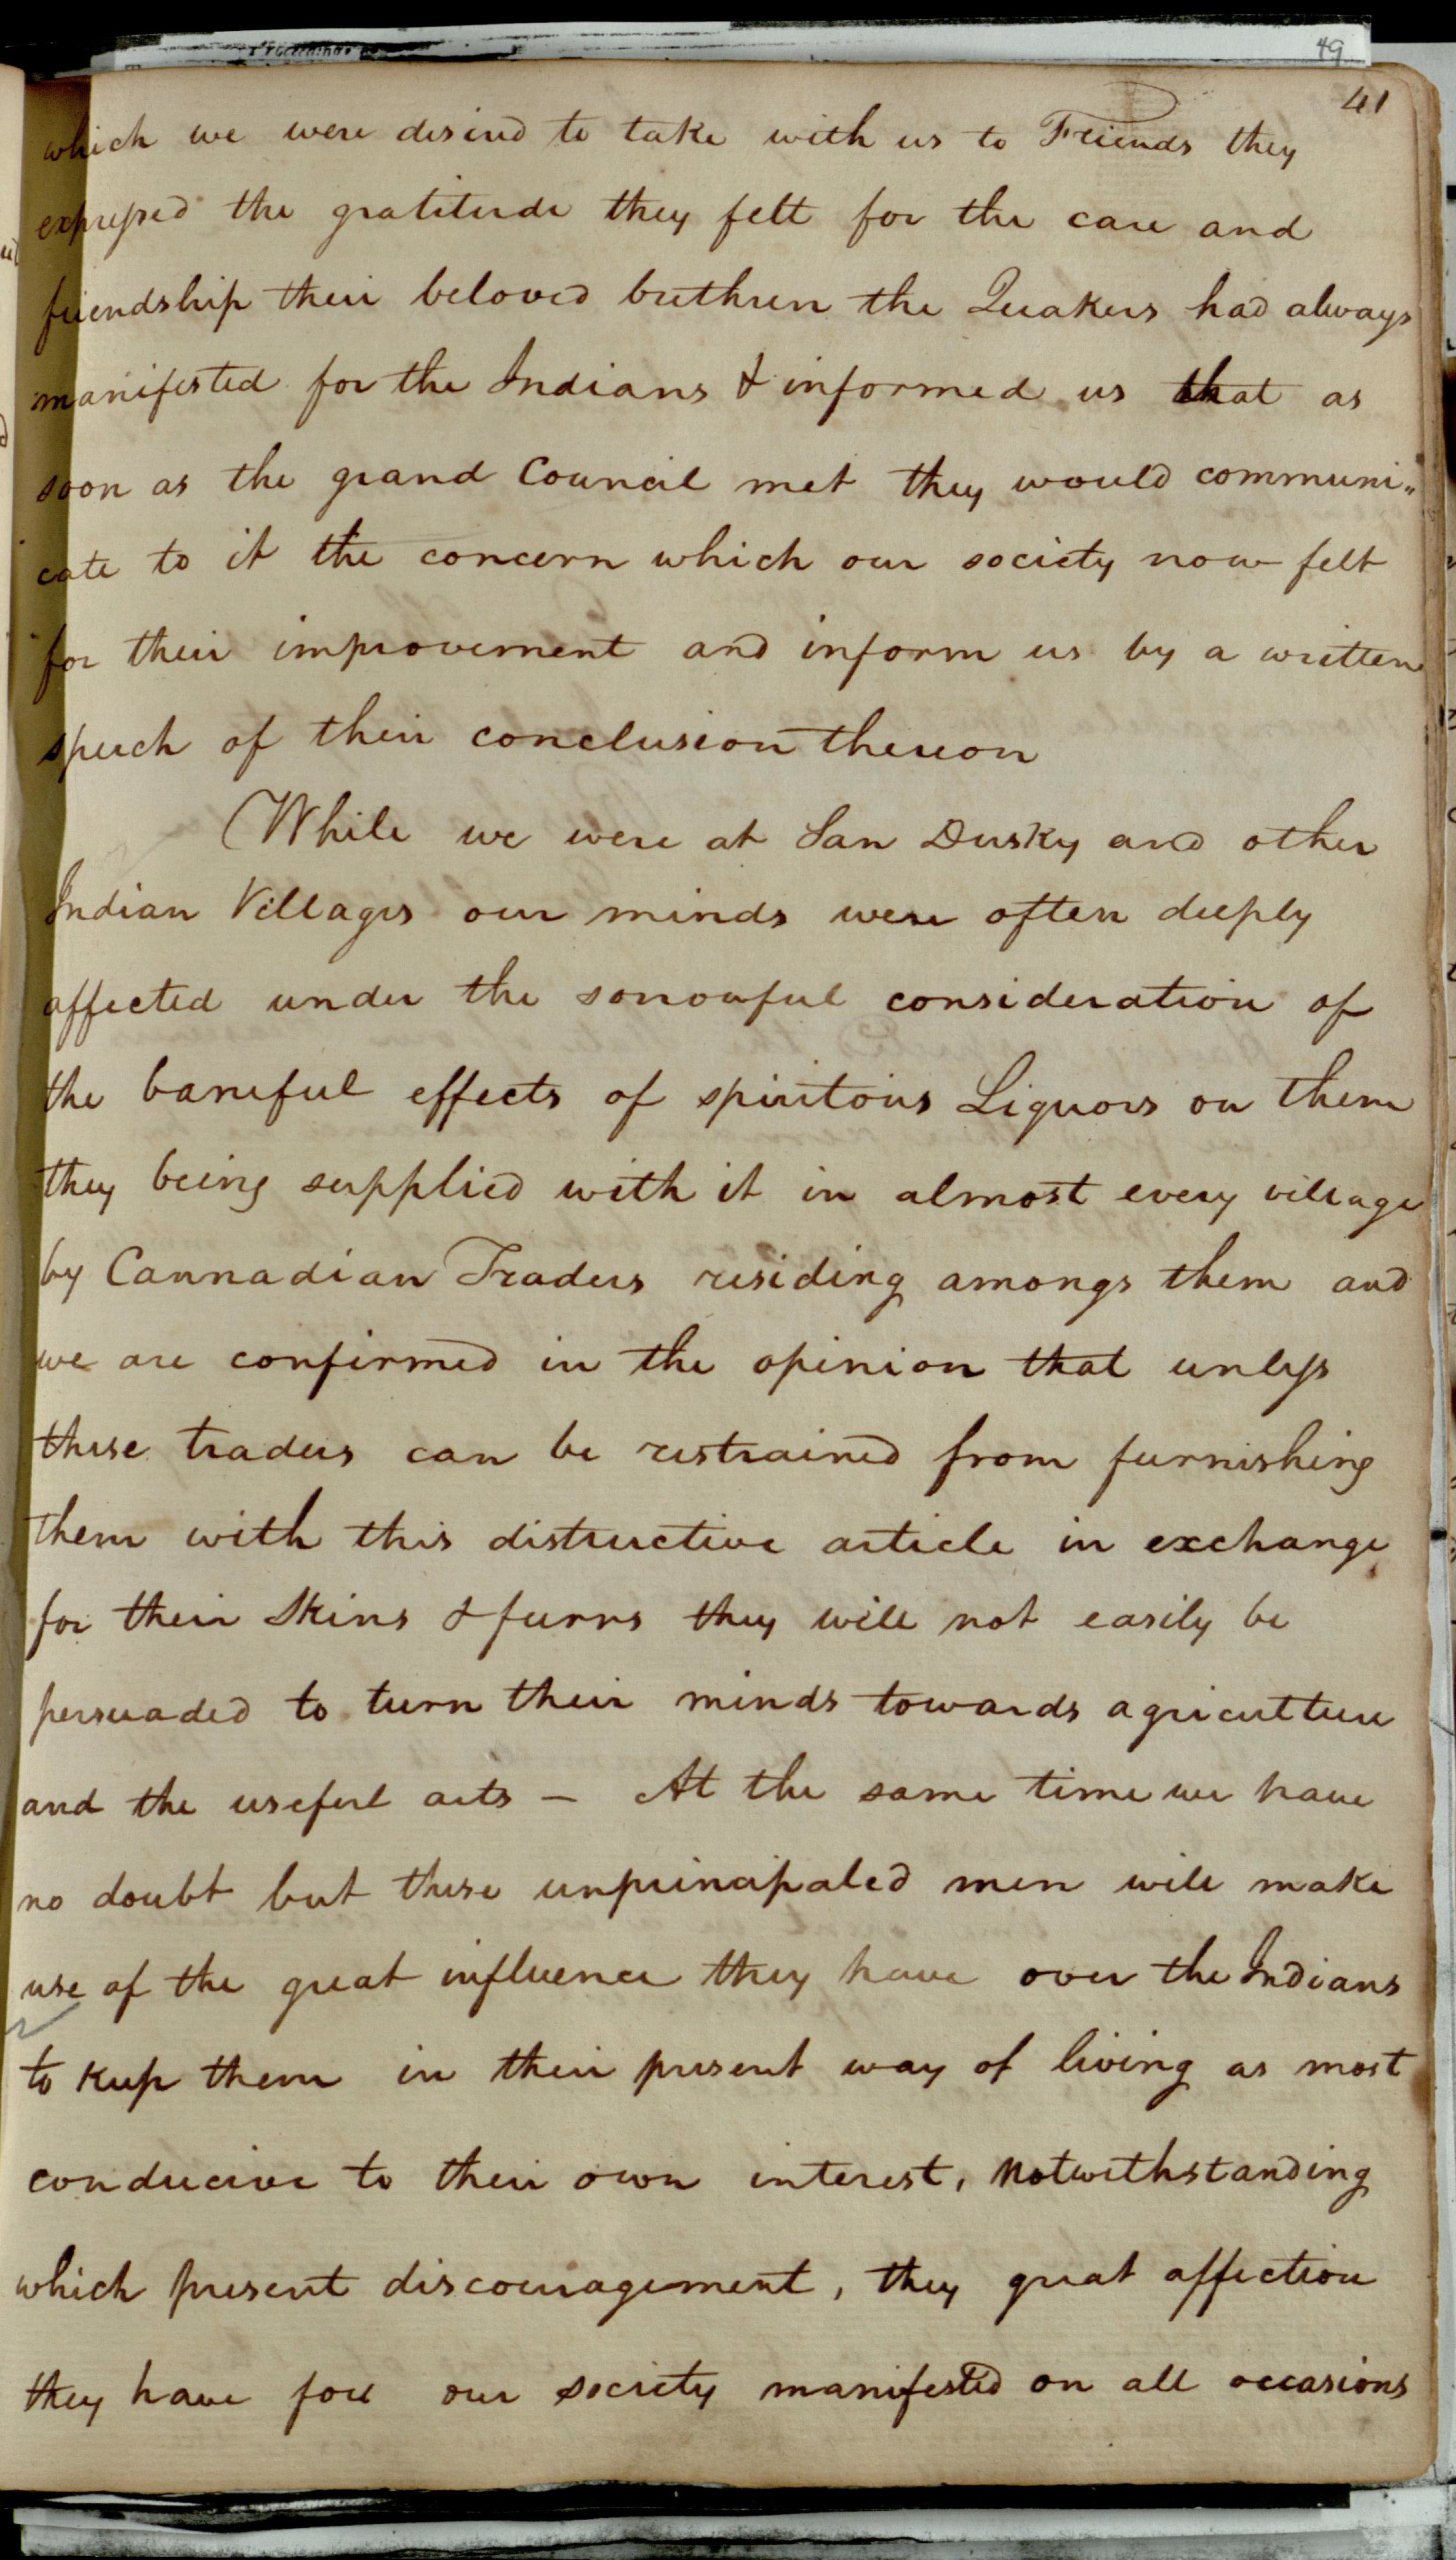 49
41
which we were desired to take with us to Friends they
expressed the gratitude they felt for the care and
friendship their beloved brethren the Quakers had always
manifested for the Indians & informed us that as
soon as the grand Council met they would communi„
cate to it the concern which our society now felt
for their improvement and inform us by a written
speech of their conclusion thereon
While we were at San Dusky and other
Indian Villages our minds were often deeply
affected under the sorrowful consideration of
the baneful effects of spiritous Liquors on them
they being supplied with it in almost every village
by Cannadian Traders residing amongs them and
we are confirmed in the opinion that unless
these traders can be restrained from furnishing
them with this distructive article in exchange
for their Skins & furrs they will not easily be
persuaded to turn their minds towards agriculture
and the useful arts — At the same time we have
no doubt but these unprincipaled men will make
use of the great influence they have over the Indians
to keep them in their present way of living as most
conducive to their own interest, Notwithstanding
which present discouragement, they great affection
they have for our society manifested on all occasions